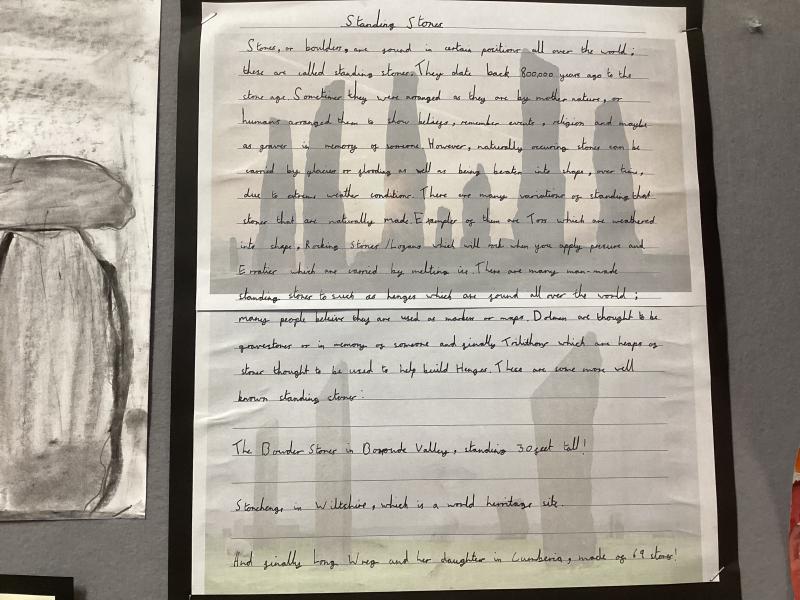 Standing Stones
Stones, or boulders, are found in certain positions all over the world;
these are called standing stones. They date back 800,000 years ago to the
stone age. Sometimes they were arranged as they are by mother nature, or
humans arranged them to show beliefs, remember events, religion and maybe
as graves in memory of someone. However, naturally occuring stones can be
carried by glaciers or flooding as well as being beaten into shape, over time,
due to extreme weather conditions. There are many variations of standing that
stones that are naturally made. Examples of them are Tors which are weathered
into shape, Rocking Stones/Logans which will rock when you apply pressure and
Erratics which are carried by melting ice. There are many man-made
standing stones to such as henges which are found all over the world;
many people beleive they are used as markers or maps. Dolmen are thought to be
gravestones or in memory of someone and finally Trilithons which are heaps of
stones thought to be used to help build Henges. These are some more well
known standing stones:
The Bowder Stones in Valley, standing 30 feet tall!
Stonehenge in Wiltshire, which is a world herritage site.
And finally Long Wreg and her daughter in Cumberia, made of 69 stones!